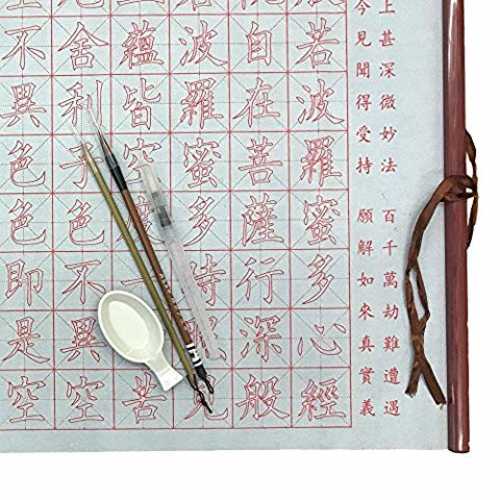 上甚深微妙法 百千萬劫難遭遇
今見聞得受持 願解如來真實義
若波羅蜜多心經
自在菩薩行深般
波羅蜜多時見
蘊皆空度一苦
舍利子色不異空
不異色色即是空